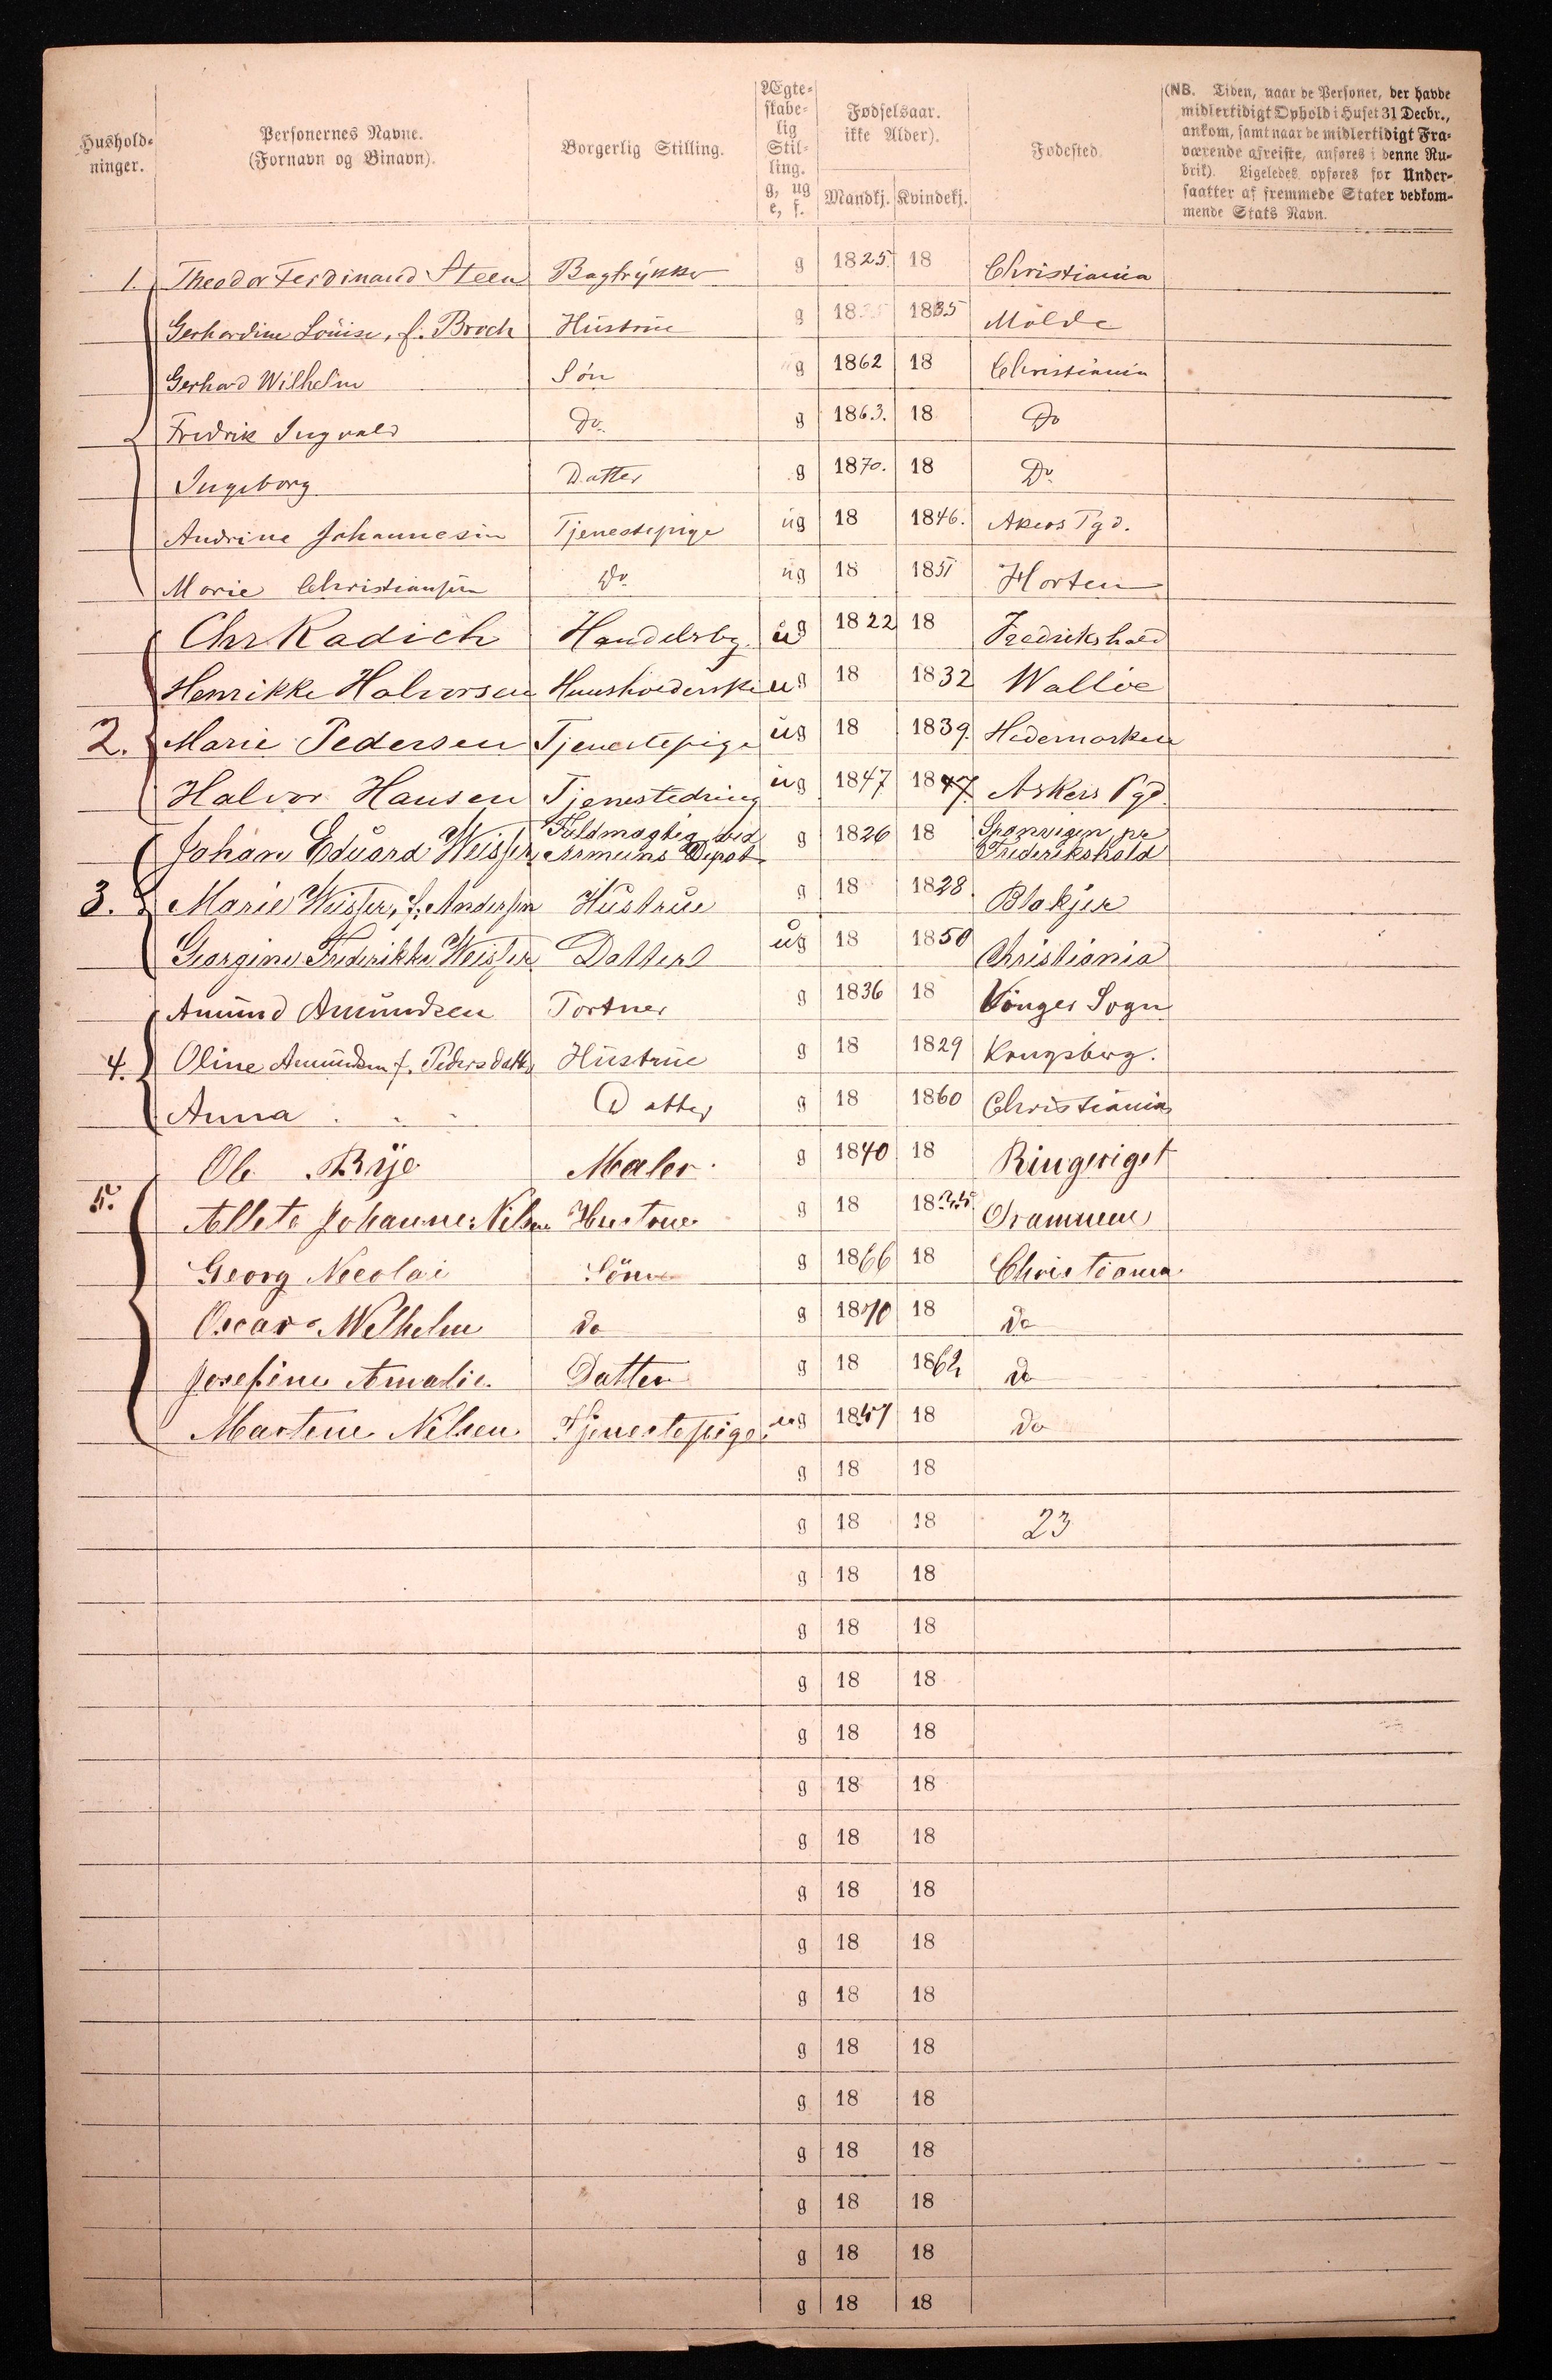 Hushold-
ninger.
Personernes Navne.
(Fornavn og Binavn).
Borgerlig Stilling.
Ægte-
skabe-
lig
Stil-
ling.
g, ug
e, f.
Fødselsaar.
ikke Alder).
Mandkj. Kvindekj.
Fødested.
(NB. Tiden, naar de Personer, der havde
midlertidigt Ophold i Huset 31 Decbr.,
ankom, samt naar de midlertidigt Fra-
værende afreiste, anføres i denne Ru-
brik). Ligeledes opføres for Under-
saatter af fremmede Stater vedkom-
mende Stats Navn.
1. Theodor Ferdinand Steen Bogtrykker g 1825. 18 Christiania
Gerhardine Louise, f. Broch Hustrue g 1835 1835 Molde
Gerhard Wilhelm Søn ug 1862 18 Christiania
Fredrik Ingvald Do. g 1863. 18 Do
Ingeborg Datter g 1870. 18 Do.
Andrine Johannesen Tjenestepige ug 18 1846. Akers Pgd.
Marie Christiansen Do. ug 18 1851 Horten
Chr Radich Handelsbg. ug 1822 18 Fredrikshald
Henrikke Halvorsen Huusholderske ug 18 1832 Walløe
2. Marie Pedersen Tjenestepige ug 18 1839. Hedemarken
Halvor Hansen Tjenestedreng ug 1847 1847. Askers Pgd.
Johan Eduard Weisser Fuldmægtig ved
Armeens Depot g 1826 18 Sponvigen pr
Frederikshald
3. Marie Weisser, f. Andersen Hustrue g 18 1828. Blakjer
Georgine Frederikke Weisser Datter ug 18 1850 Christiania
Amund Amundsen Portner g 1836 18 Vinger Sogn
4. Oline Amundsen f. Pedersdatter Hustrue g 18 1829 Kongsberg.
Anna Datter g 18 1860 Christiania
Ole Rye Maler. g 1840 18 Ringeriget
5. Allete Johanne Nilsen Hustrue g 18 1835 Drammen
Georg Nicolai Sønn g 1866 18 Christiania
Oscar Wilhelm do g 1870 18 do
Josefine Amalie. Datter g 18 1862 do
Martine Nilsen Tjenestepige. ug 1851 18 do
g 18 18
g 18 18 23
g 18 18
g 18 18
g 18 18
g 18 18
g 18 18
g 18 18
g 18 18
g 18 18
g 18 18
g 18 18
g 18 18
g 18 18
g 18 18
g 18 18
g 18 18